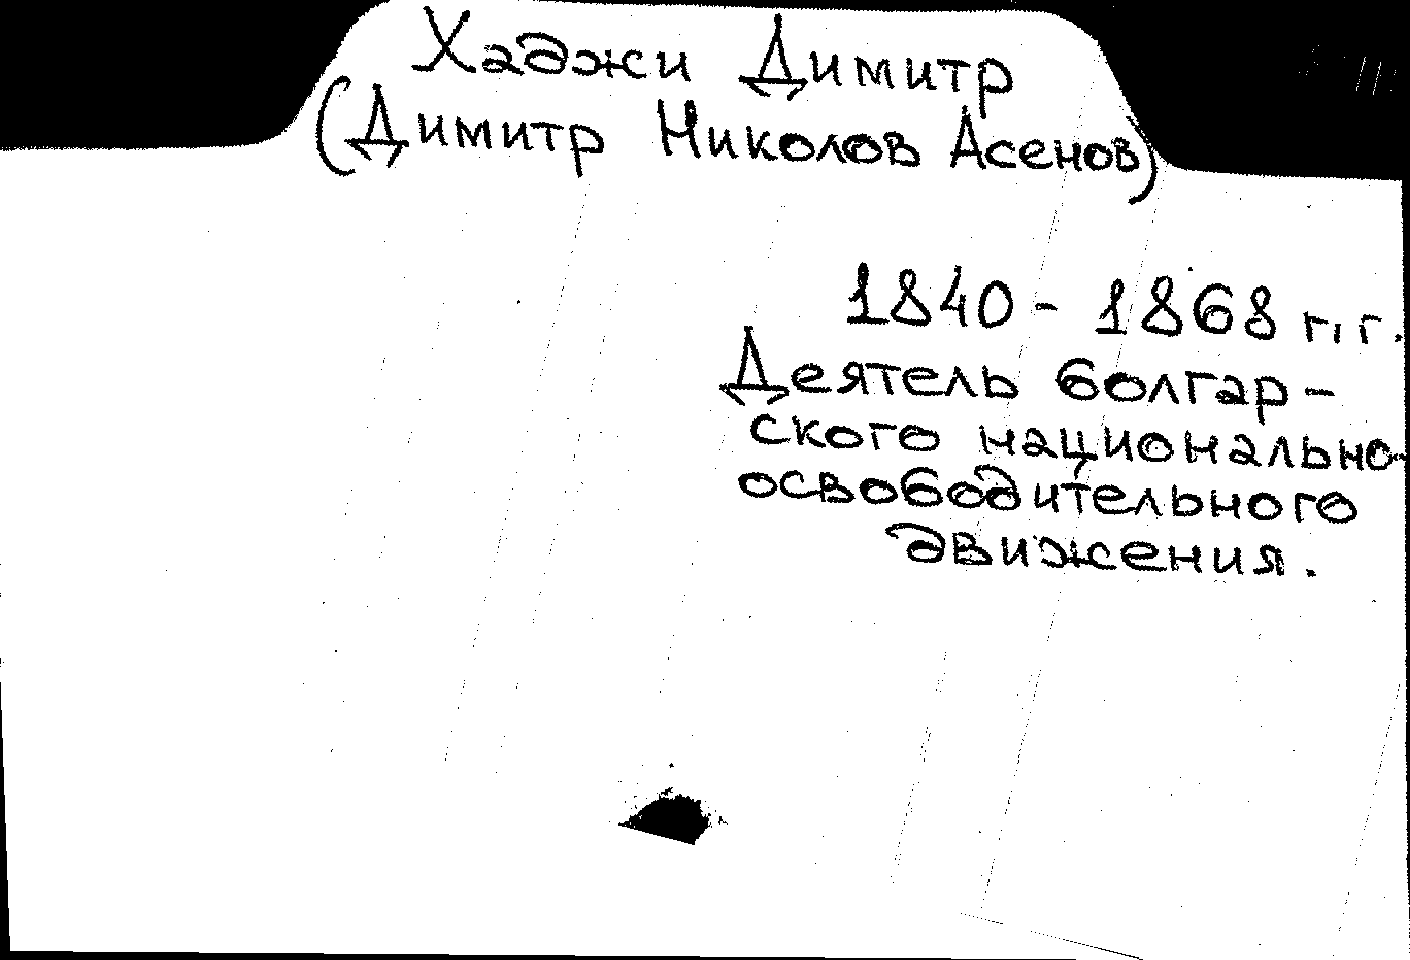 Хаджи Димитр
(Димитр Николов Асенов)
1840 - 1868 г.г.
Деятель болгар-
ского национально-
освободительного
движения.